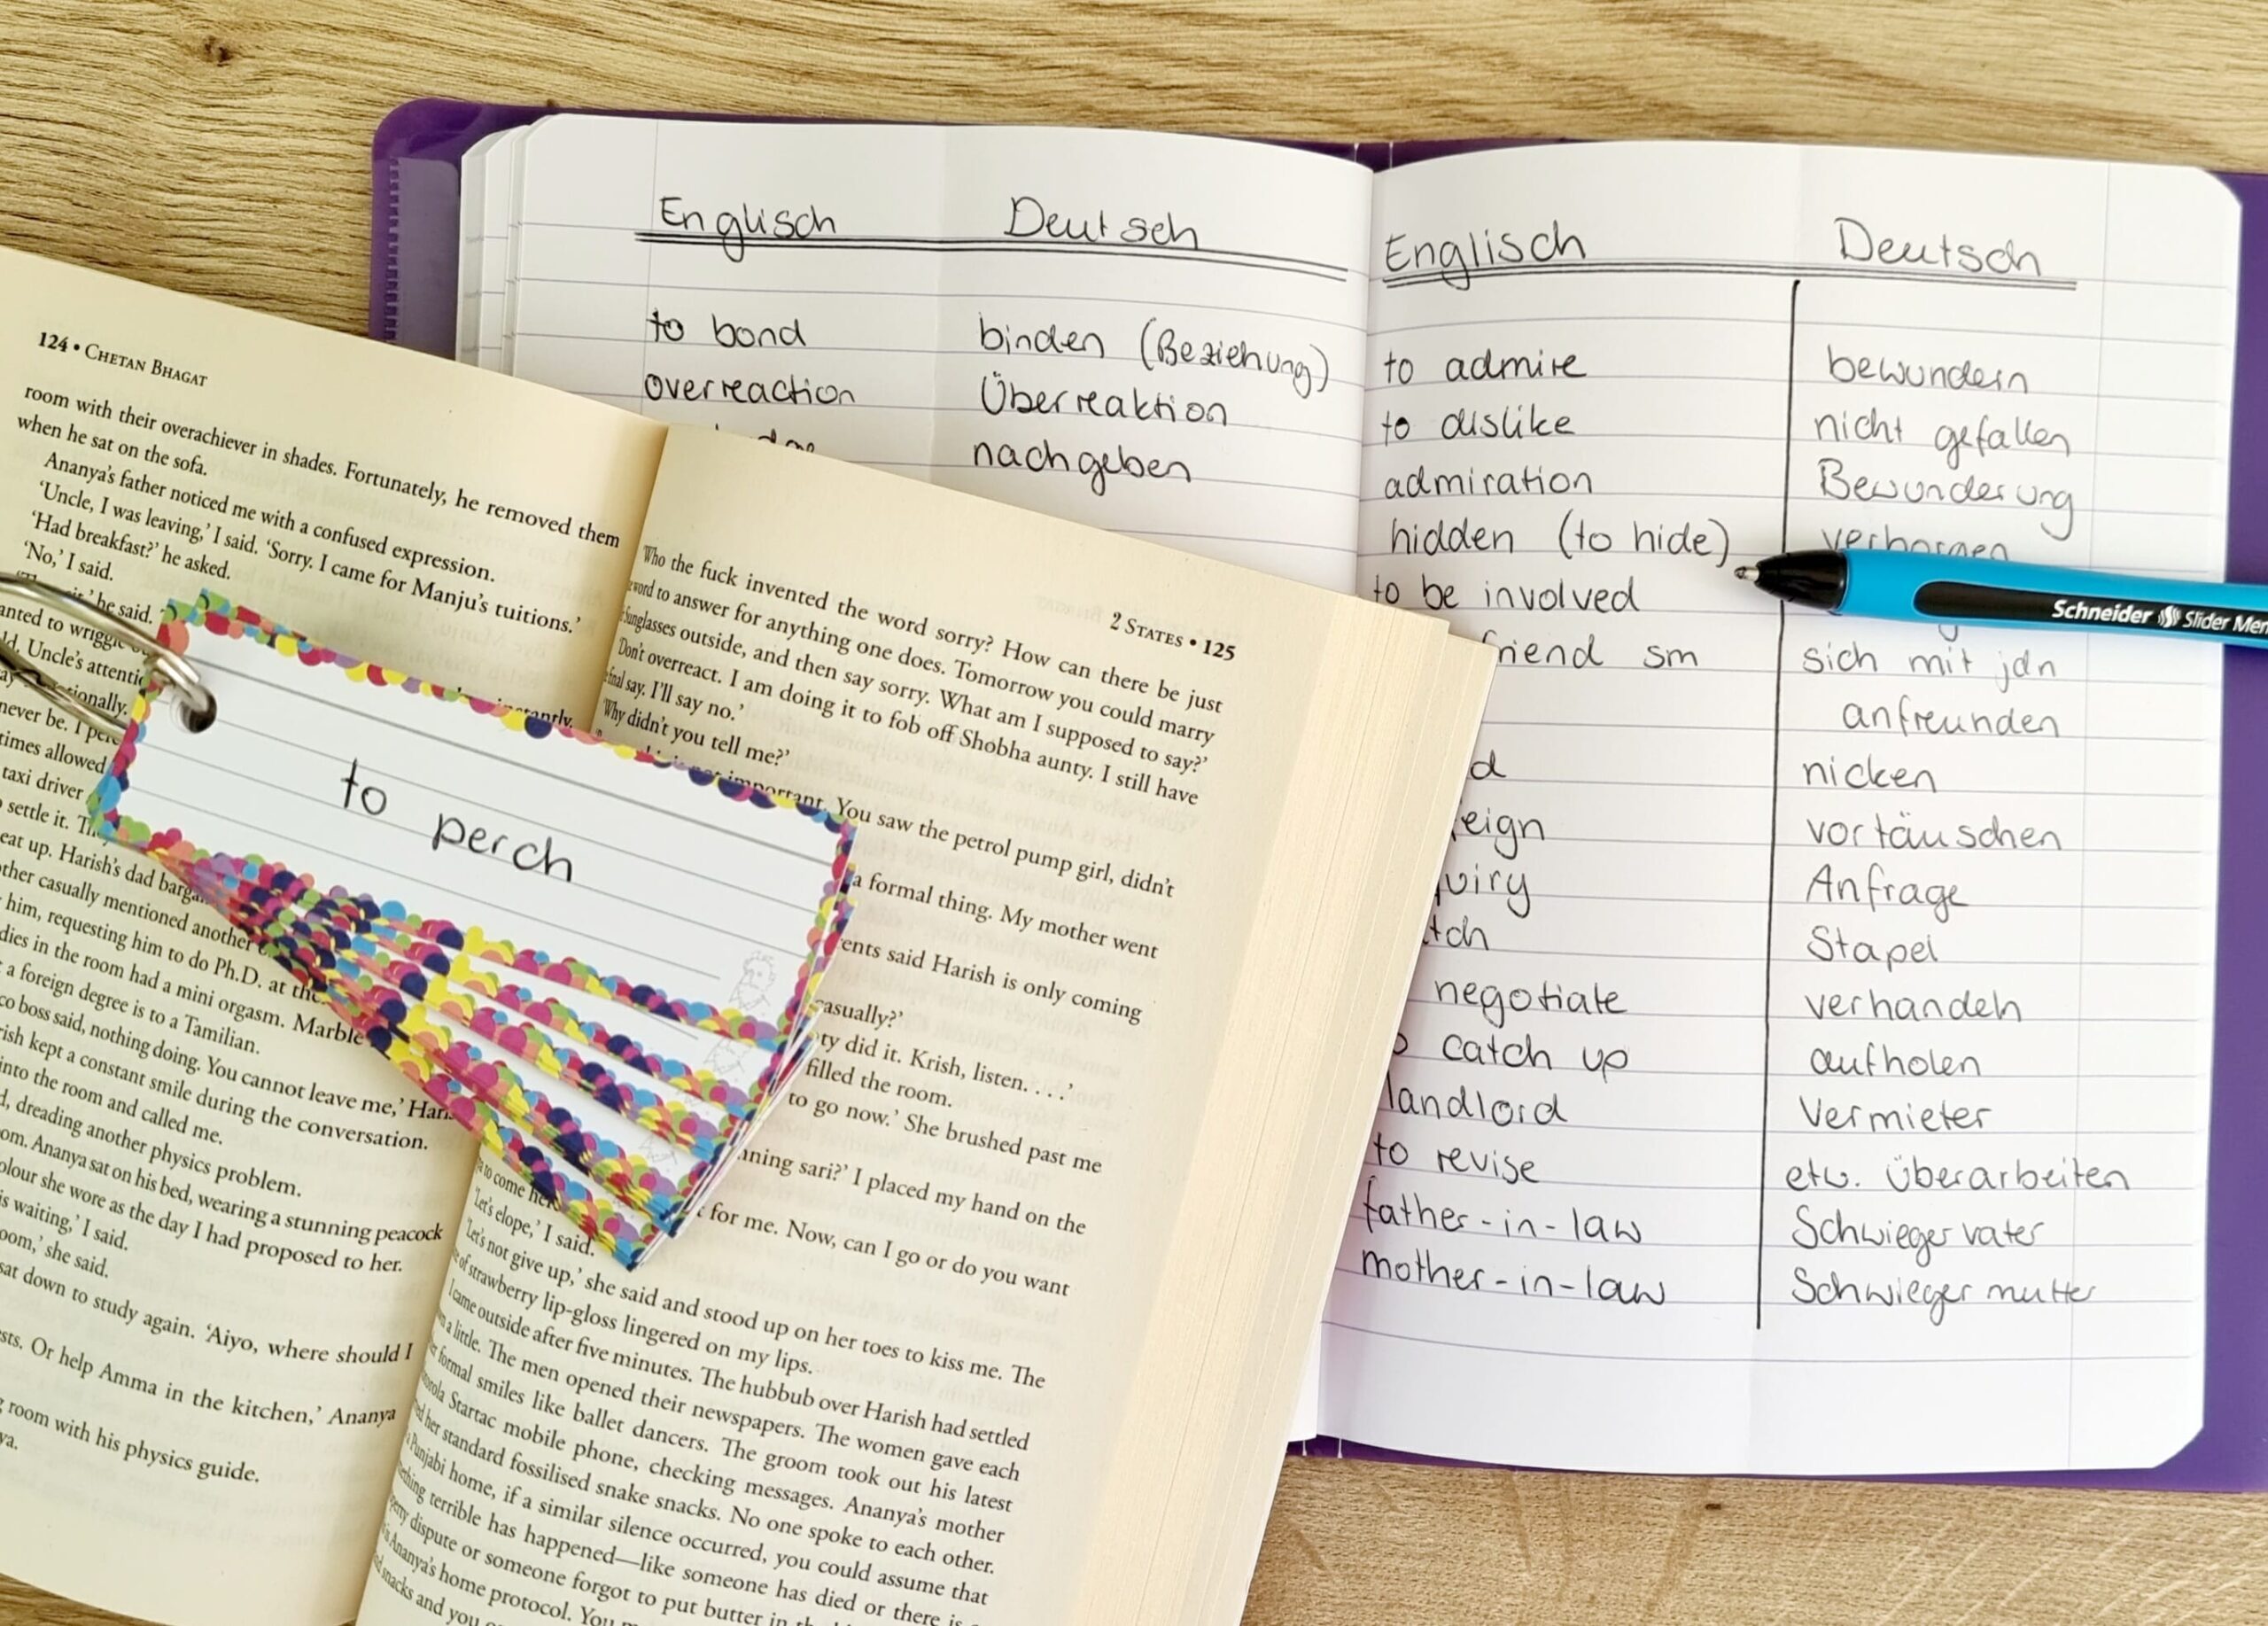 Englisch Deutsch
to bond binden (Beziehung)
overreaction Überreaktion
nachgeben
Englisch Deutsch
to admire bewundern
to dislike nicht gefallen
admiration Bewunderung
hidden (to hide) verborgen
to be involved
sm sich mit jdn
anfreunden
nicken
vortäuschen
Anfrage
Stapel
negotiate verhandeln
catch up aufholen
landlord Vermieter
to revise etw. überarbeiten
father-in-law Schwiegervater
mother-in-law Schwiegermutter
Schneider Slider
124 • CHETAN BHAGAT
room with their overachiever in shades. Fortunately, he removed them
when he sat on the sofa.
Ananya's father noticed me with a confused expression.
'Uncle, I was leaving,' I said. 'Sorry. I came for Manju's tuitions.'
'Had breakfast?' he asked.
'No,' I said.
he said.
to wriggle
Uncle's
never be. I
times allowed
taxi driver
settle it.
eat up. Harish's dad
casually mentioned another
him, requesting him to do Ph.D. at the
in the room had a mini orgasm. Marble
a foreign degree is to a Tamilian.
boss said, nothing doing. You cannot leave me,'
kept a constant smile during the conversation.
into the room and called me.
dreading another physics problem.
Ananya sat on his bed, wearing a stunning peacock
she wore as the day I had proposed to her.
waiting,' I said.
she said.
sat down to study again. 'Aiyo, where should I
Or help Amma in the kitchen,' Ananya
room with his physics guide.
to perch
2 STATES • 125
'Who the fuck invented the word sorry? How can there be just
word to answer for anything one does. Tomorrow you could marry
sunglasses outside, and then say sorry. What am I supposed to say?'
'Don't overreact. I am doing it to fob off Shobha aunty. I still have
final say. I'll say no.'
'Why didn't you tell me?'
not important. You saw the petrol pump girl, didn't
a formal thing. My mother went
said Harish is only coming
did it. Krish, listen. . . .'
filled the room.
to go now.' She brushed past me
sari?' I placed my hand on the
for me. Now, can I go or do you want
to come
'Let's elope,' I said.
'Let's not give up,' she said and stood up on her toes to kiss me. The
of strawberry lip-gloss lingered on my lips.
I came outside after five minutes. The hubbub over Harish had settled
a little. The men opened their newspapers. The women gave each
formal smiles like ballet dancers. The groom took out his latest
Startac mobile phone, checking messages. Ananya's mother
her standard fossilised snake snacks. No one spoke to each other.
Punjabi home, if a similar silence occurred, you could assume that
terrible has happened—like someone has died or there is
dispute or someone forgot to put butter in
Ananya's home protocol. You
snacks and you